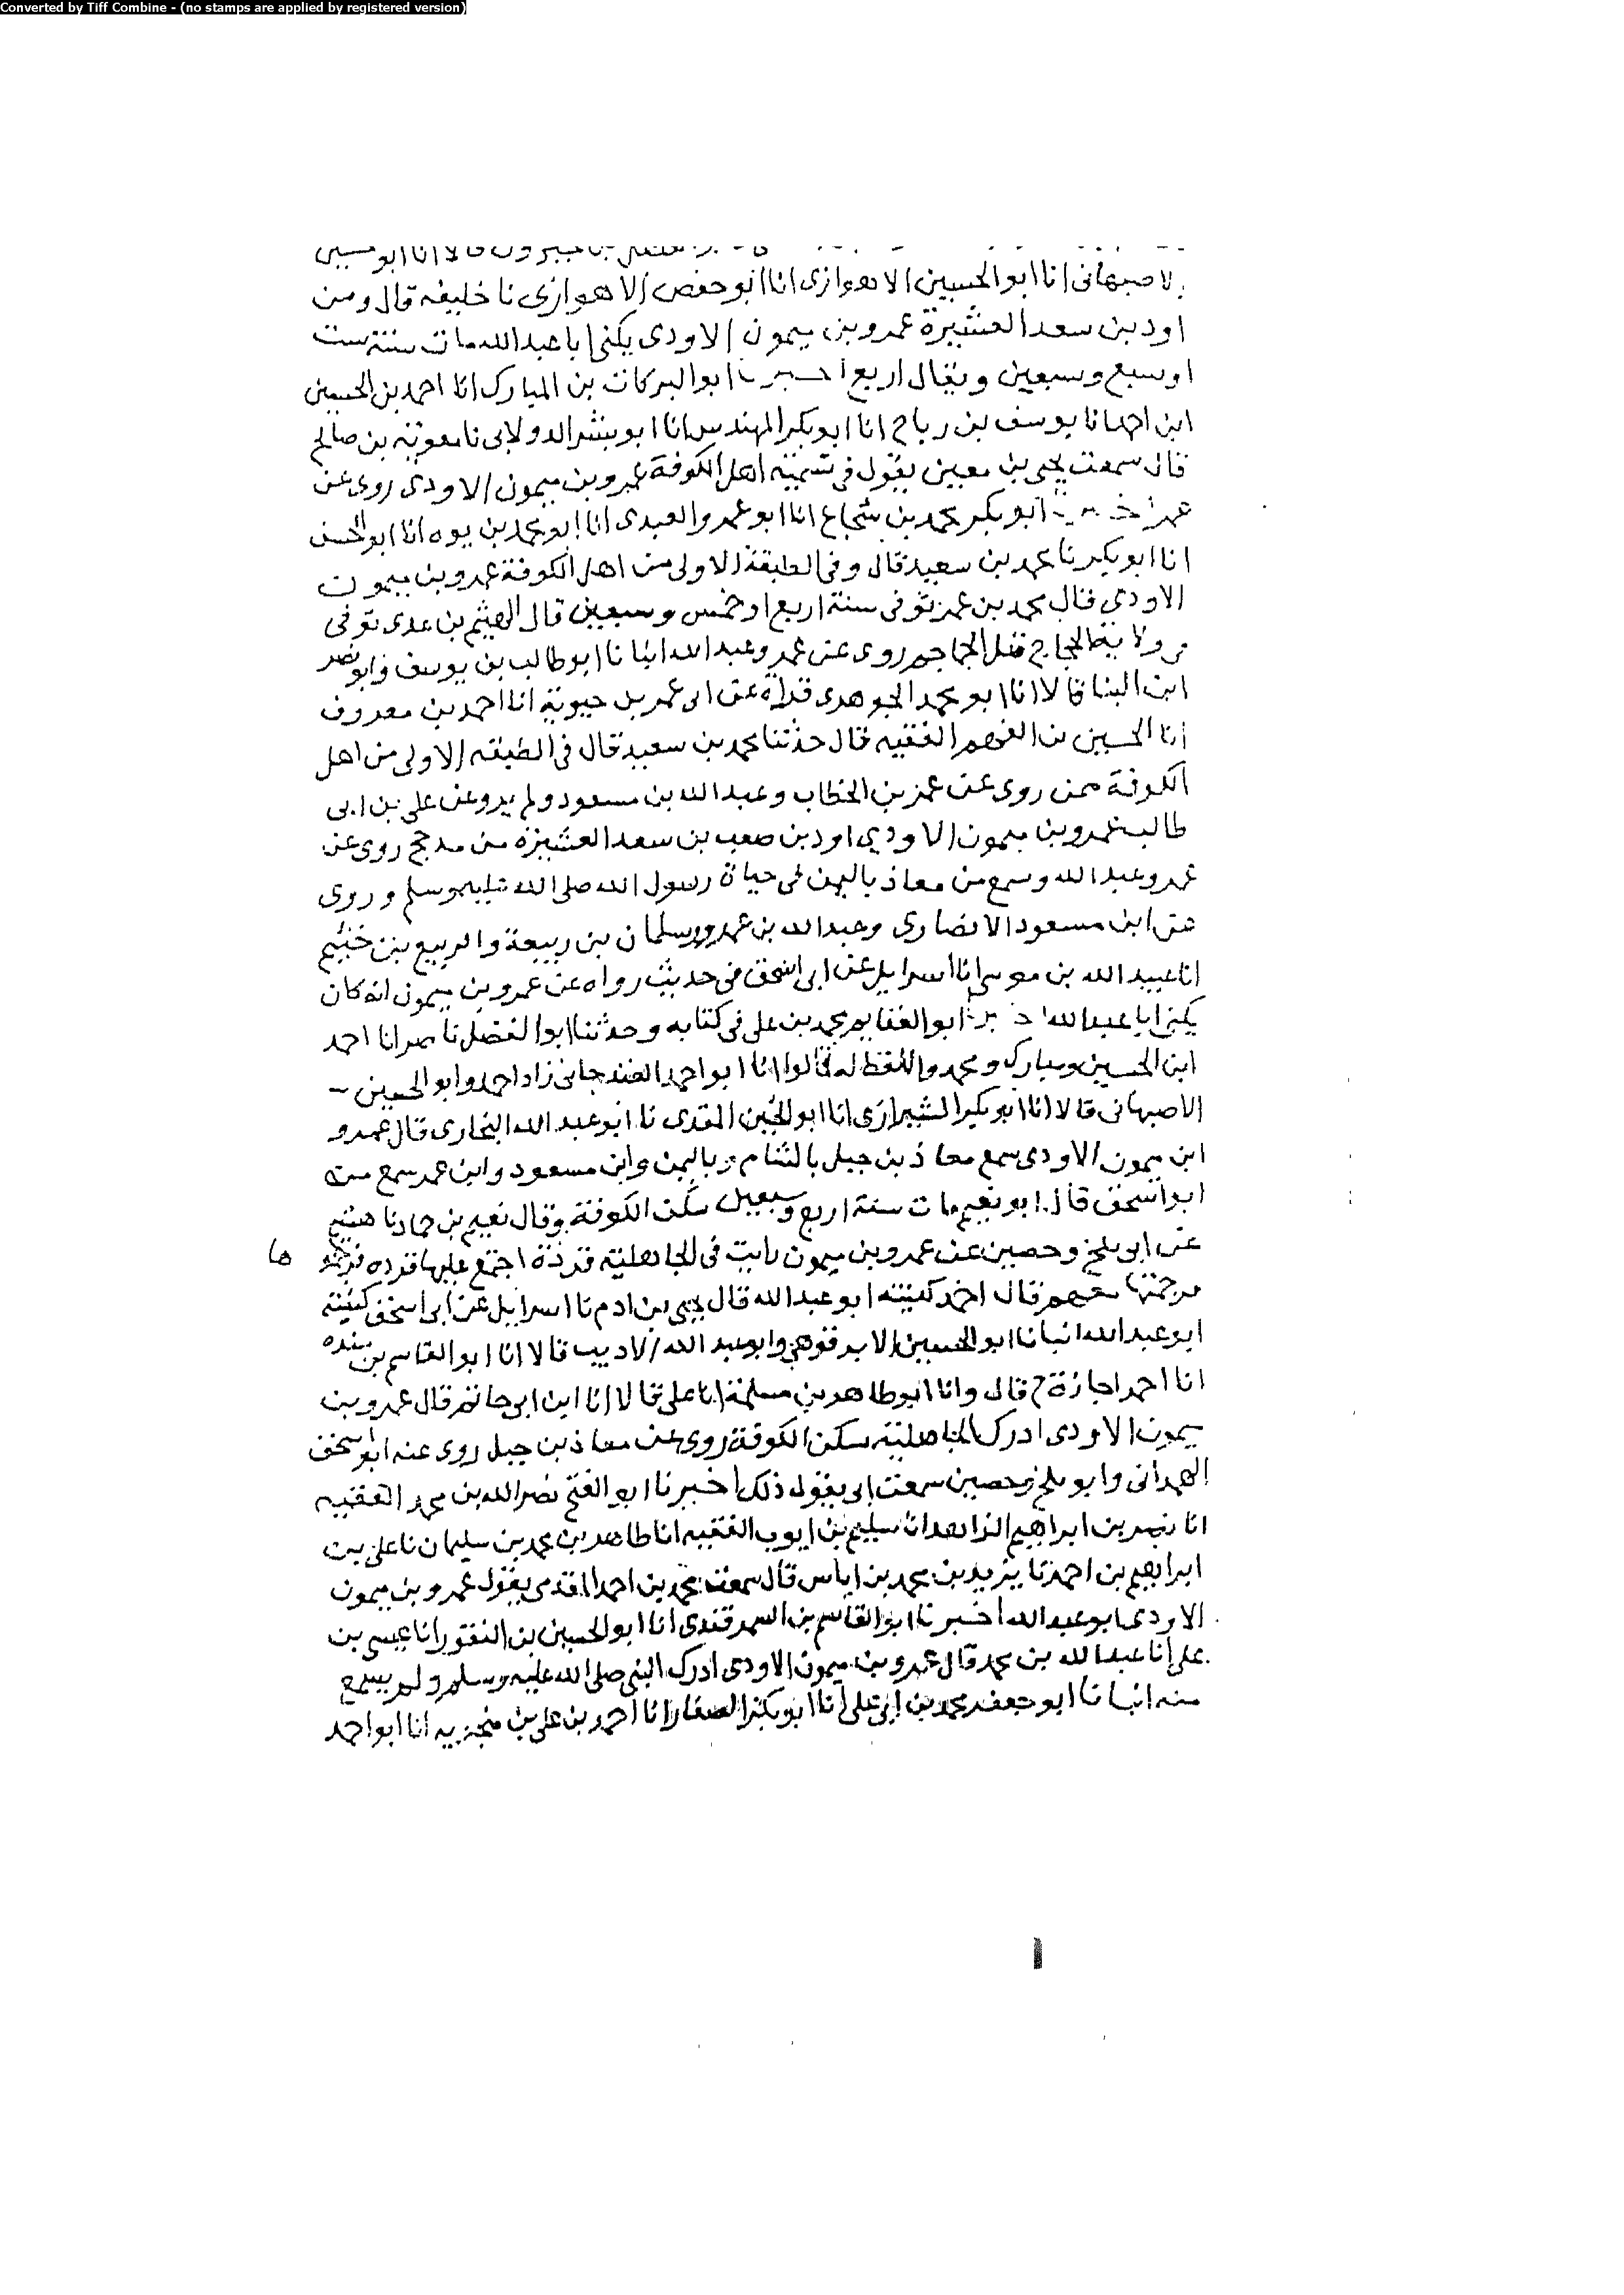 Converted by Tiff Combine - (no stamps are applied by registered version)
خيرون قالا انا ابو الحسين
الاصبهانى انا ابو الحسين الاهوازى انا ابو حفص الاهوازى نا خليفه قال ومن
اود بن سعد العشيرة عمرو بن ميمون الاودى يكنى ابا عبد الله مات سنة ست
او سبع وسبعين ويقال اربع اخبرنا ابو البركات بن المبارك انا احمد بن الحسين
ابن احمد انا يوسف بن رباح انا ابو بكر المهندس انا ابو بشر الدولابى نا معوية بن صالح
قال سمعت يحيى بن معين يقول فى تسمية اهل الكوفة عمرو بن ميمون الاودى روى عن
عمر اخبرنا ابو بكر محمد بن شجاع انا ابو عمرو العبدى انا ابو محمد بن يوه انا ابو الحسن
انا ابو بكر نا محمد بن سعيد قال وفى الطبقة الاولى من اهل الكوفة عمرو بن ميمون
الاودي قال محمد بن عمر توفى سنة اربع او خمس وسبعين قال الهيثم بن عدى توفى
فى ولاية الحجاج قبل الجماجم روى عن عمر وعبد الله انبانا ابو طالب بن يوسف وابو نصر
ابن البنا قالا انا ابو محمد الجوهرى قراة عن ابى عمر بن حيوية انا احمد بن معروف
انا الحسين بن الفهم الفقيه قال حدثنا محمد بن سعيد قال فى الطبقه الاولى من اهل
الكوفة ممن روى عن عمر بن الخطاب وعبد الله بن مسعود ولم يرو عن على بن ابى
طالب عمرو بن ميمون الاودي اود بن صعب بن سعد العشيرة من مدحج روى عن
عمر وعبد الله وسمع من معاذ باليمن فى حياة رسول الله صلى الله عليه وسلم وروى
عن ابن مسعود الانصارى وعبد الله بن عمرو وسلمان بن ربيعة والربيع بن خثيم
انا عبيد الله بن موسى انا اسرايل عن ابى اسحق فى حديث رواه عن عمرو بن ميمون انه كان
يكنى ابا عبد الله اخبرنا ابو الغنايم محمد بن على فى كتابه وحدثنا ابو الفضل ناصر انا احمد
ابن الحسين ومبارك ومحمد واللفظ له قالوا انا ابو احمد الغندجانى زاد احمد وابو الحسين
الاصبهانى قالا انا ابو بكر الشيرازى انا ابو الحسن المقرى نا ابو عبد الله البخارى قال عمرو
ابن ميمون الاودى سمع معاذ بن جبل بالشام وباليمن وابن مسعود وابن عمر سمع منه
ابو اسحق قال ابو نعيم مات سنة اربع وسبعين سكن الكوفة وقال نعيم بن حماد نا هشيم
عن ابى بلج وحصين عن عمرو بن ميمون رايت فى الجاهلية قردة اجتمع عليها قرده فرجموها
فرجمتها معهم قال احمد كنيته ابو عبد الله قال يحيى بن ادم نا اسرايل عن ابى اسحق كنيته
ابو عبد الله انبانا ابو الحسين الابرقوهى وابو عبد الله الاديب قالا انا ابو القاسم بن منده
انا احمد اجازة ح قال وانا ابو طاهر بن سلمة انا على قالا انا ابن ابى حاتم قال عمرو بن
ميمون الاودى ادرك الجاهلية سكن الكوفة روى عن معاذ بن جبل روى عنه ابو اسحق
الهمدانى وابو بلج وحصين سمعت ابى يقول ذلك اخبرنا ابو الفتح نصر الله بن محمد الفقيه
انا نصر بن ابراهيم الزاهد انا سليم بن ايوب الفقيه انا طاهر بن محمد بن سليمان نا على بن
ابراهيم بن احمد نا يزيد بن محمد بن اياس قال سمعت محمد بن احمد المقدمى يقول عمرو بن ميمون
الاودى ابو عبد الله اخبرنا ابو القاسم بن السمرقندى انا ابو الحسين بن النقور انا عيسى بن
على انا عبد الله بن محمد قال عمرو بن ميمون الاودى ادرك النبى صلى الله عليه وسلم ولم يسمع
منه انبانا ابو جعفر محمد بن ابى على انا ابو بكر الصفار انا احمد بن على بن منجويه انا ابو احمد